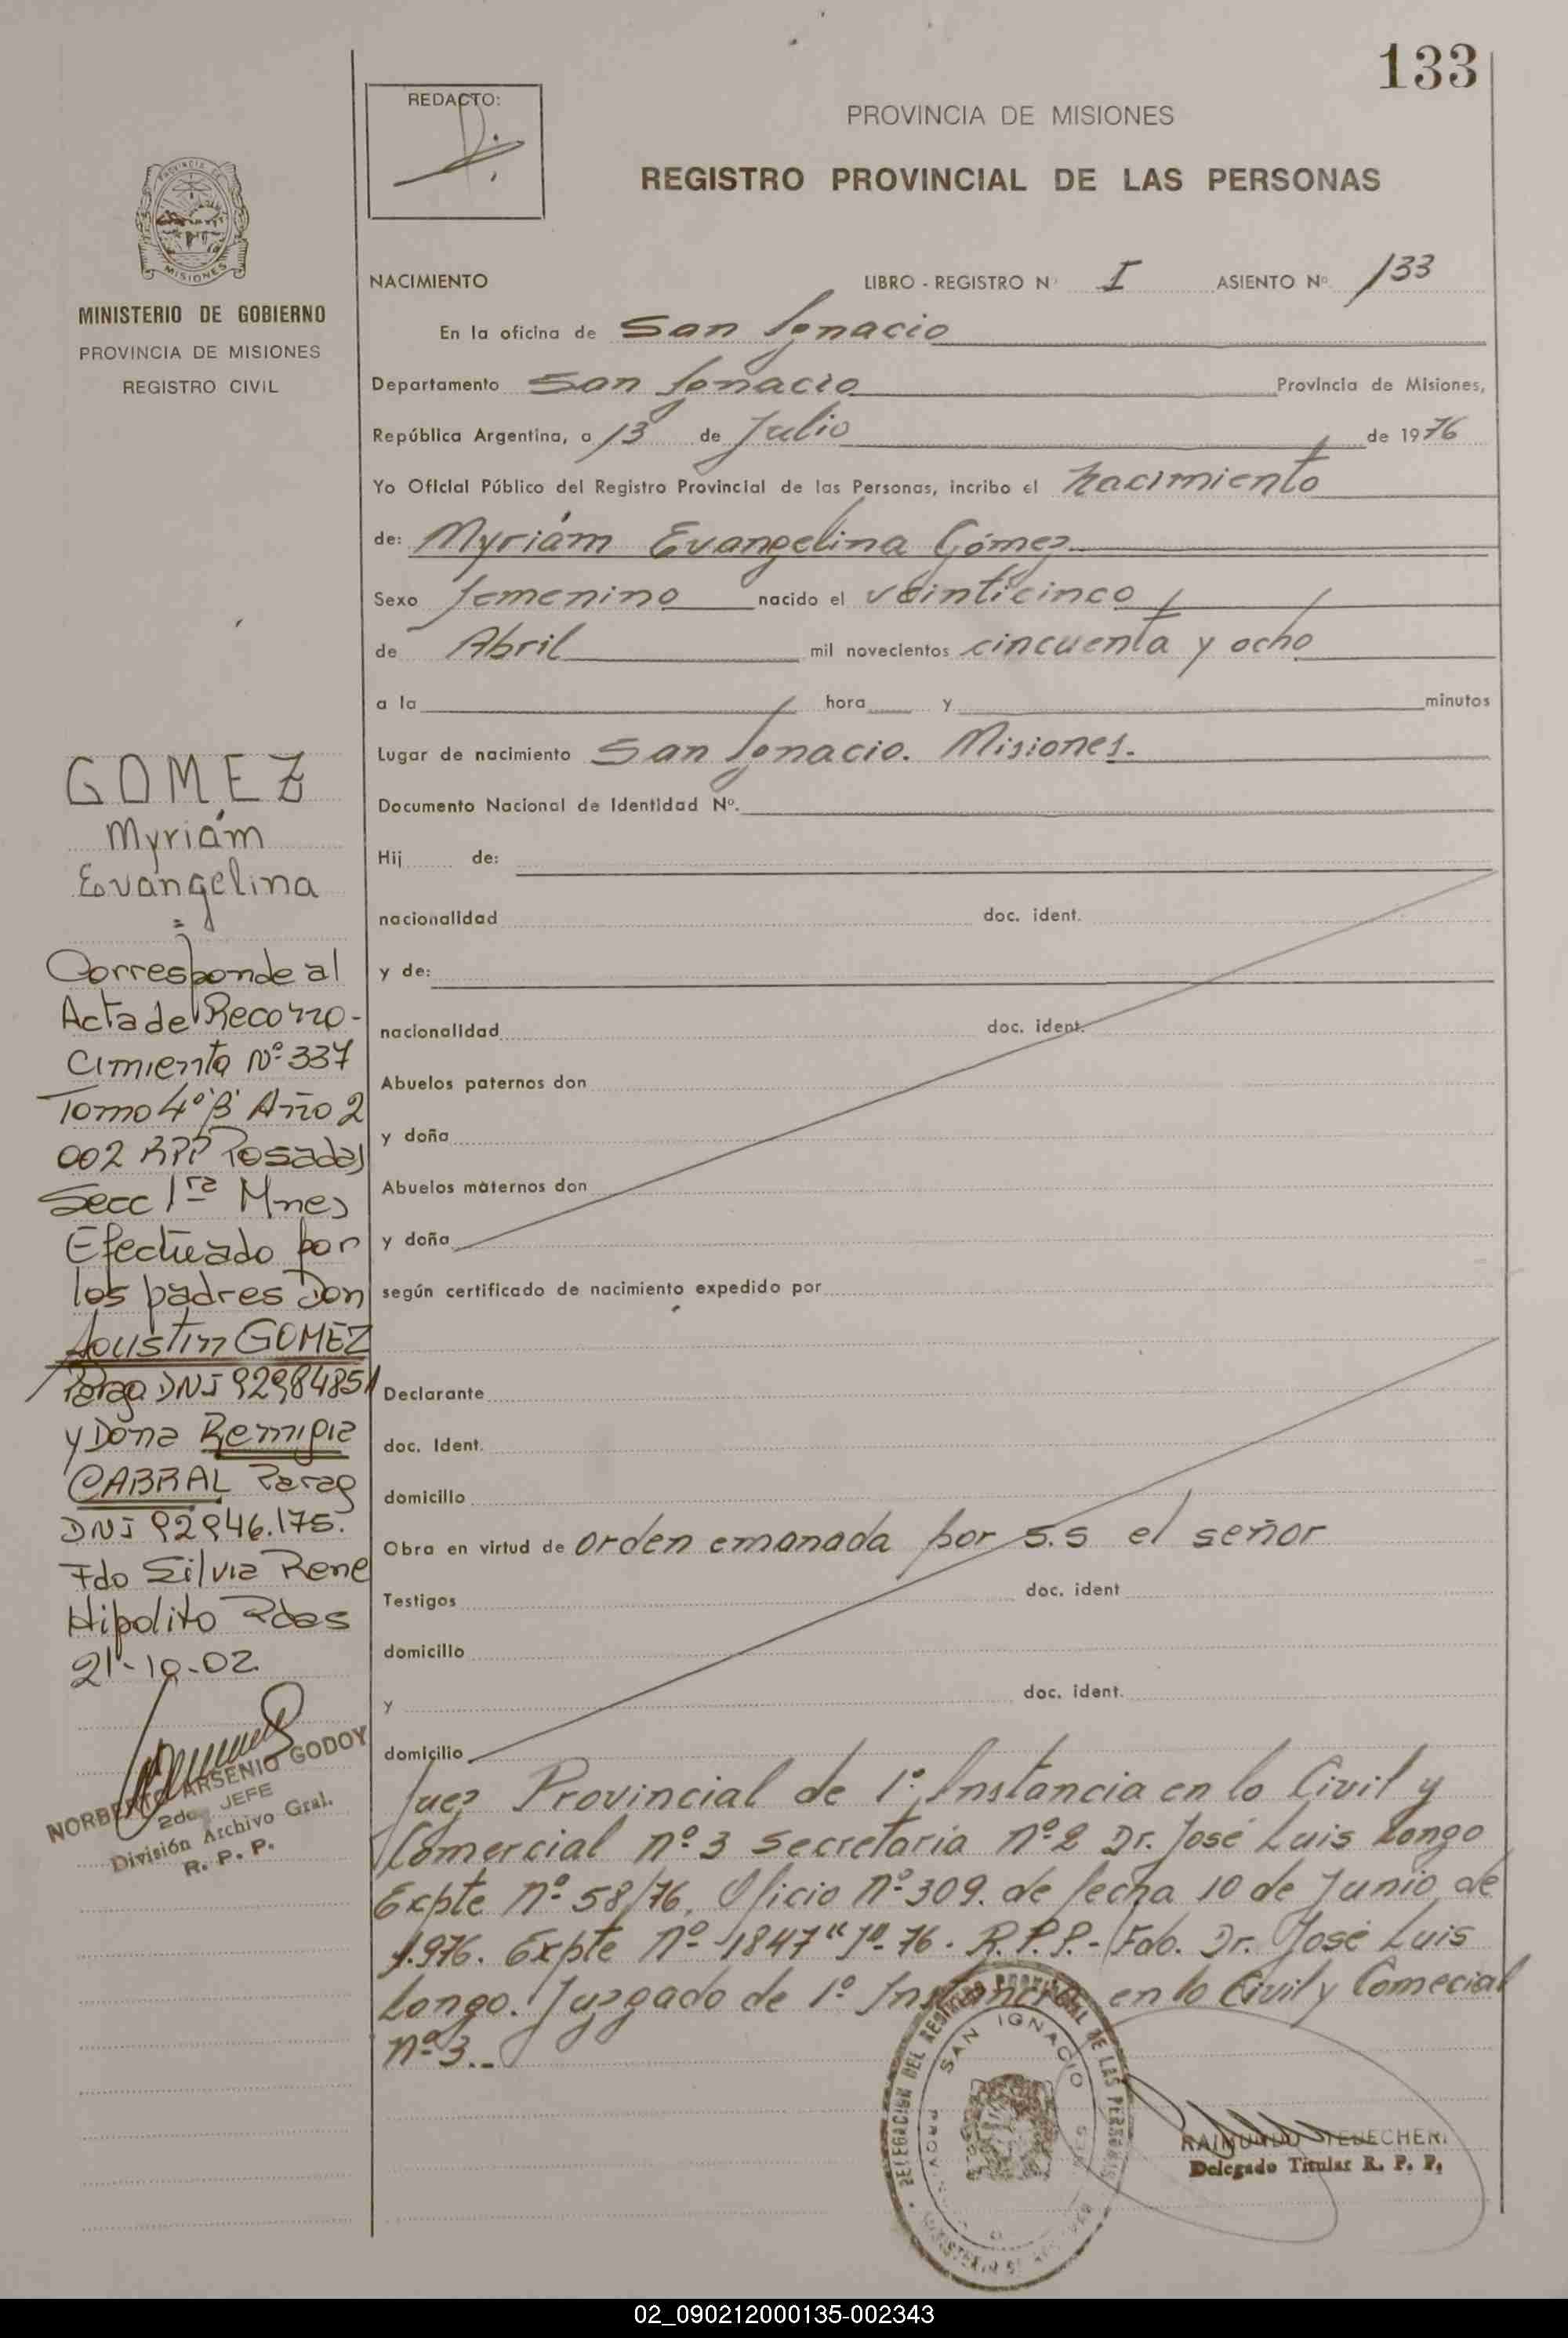 133
REDACTO:
PROVINCIA DE MISIONES
REGISTRO PROVINCIAL DE LAS PERSONAS
MISIONES
MINISTERIO DE GOBIERNO
PROVINCIA DE MISIONES
REGISTRO CIVIL
NACIMIENTO LIBRO - REGISTRO Nº I ASIENTO Nº 133
En la oficina de San Ignacio
Departamento San Ignacio Provincia de Misiones,
República Argentina, a 13 de Julio de 1976
Yo Oficial Público del Registro Provincial de las Personas, incribo el nacimiento
de: Myriám Evangelina Gómez
Sexo femenino nacido el veinticinco
de Abril mil novecientos cincuenta y ocho
a la hora y minutos
Lugar de nacimiento San Ignacio. Misiones.
Documento Nacional de Identidad Nº.
Hij de:
nacionalidad doc. ident.
y de:
nacionalidad doc. ident.
Abuelos paternos don
y doña
Abuelos maternos don
y doña
según certificado de nacimiento expedido por
Declarante
doc. Ident.
domicilio
Obra en virtud de orden emanada por S.S el señor
Testigos doc. ident
domicilio
y doc. ident.
domicilio
Juez Provincial de 1º Instancia en lo Civil y
Comercial nº 3 secretaria nº 2 Dr. José Luis Longo
Expte nº 58/76, Oficio nº 309. de fecha 10 de Junio de
1.976. Expte nº 1847 "J"- 76. R.P.P.- Fdo. Dr. José Luis
Longo. Juzgado de 1º Instancia en lo Civil y Comecial
nº 3.-
GOMEZ
Myriám
Evangelina
=
Corresponde al
Acta de Recono-
cimiento Nº 337
Tomo 4º "B" Año 2
002 RPP Posadas
Secc 1ra Mnes
Efectuado por
los padres Don
Agustin GOMEZ
Parag DNI 92984851
y Dona Remigia
CABRAL Parag
DNI 92946.175.
Fdo Silvia Rene
Hipolito Pdas
21-10-02
NORBERTO ARSENIO GODOY
2do JEFE
División Archivo Gral.
R. P. P.
DELEGACION DEL REGISTRO PROVINCIAL DE LAS PERSONAS
SAN IGNACIO
RAIMUNDO
Delegado Titular R. P. P.
02_090212000135-002343